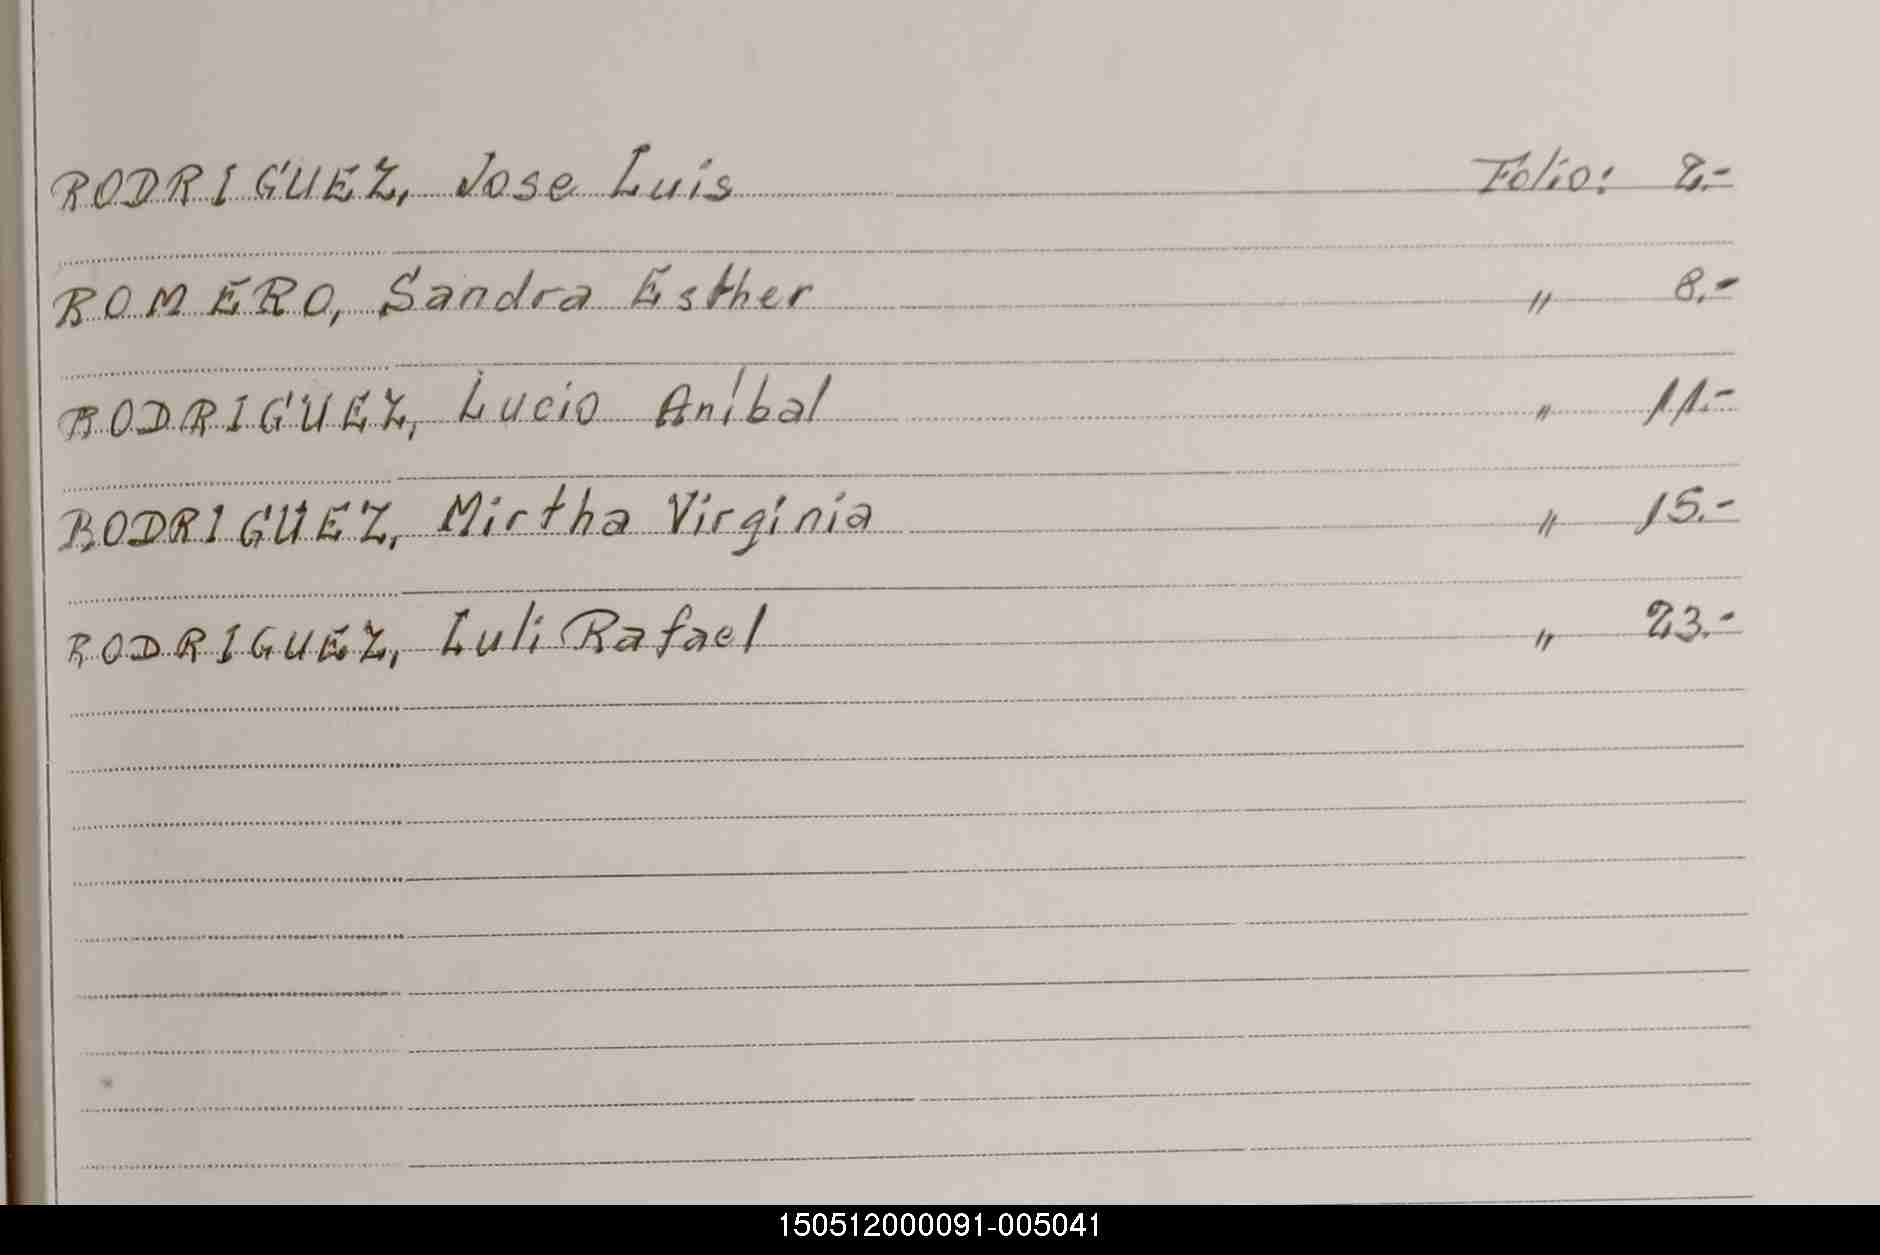 RODRIGUEZ, Jose Luis Folio: 2.-
ROMERO, Sandra Esther " 8.-
RODRIGUEZ, Lucio Aníbal " 11.-
RODRIGUEZ, Mirtha Virginia " 15.-
RODRIGUEZ, Luli Rafael " 23.-
150512000091-005041